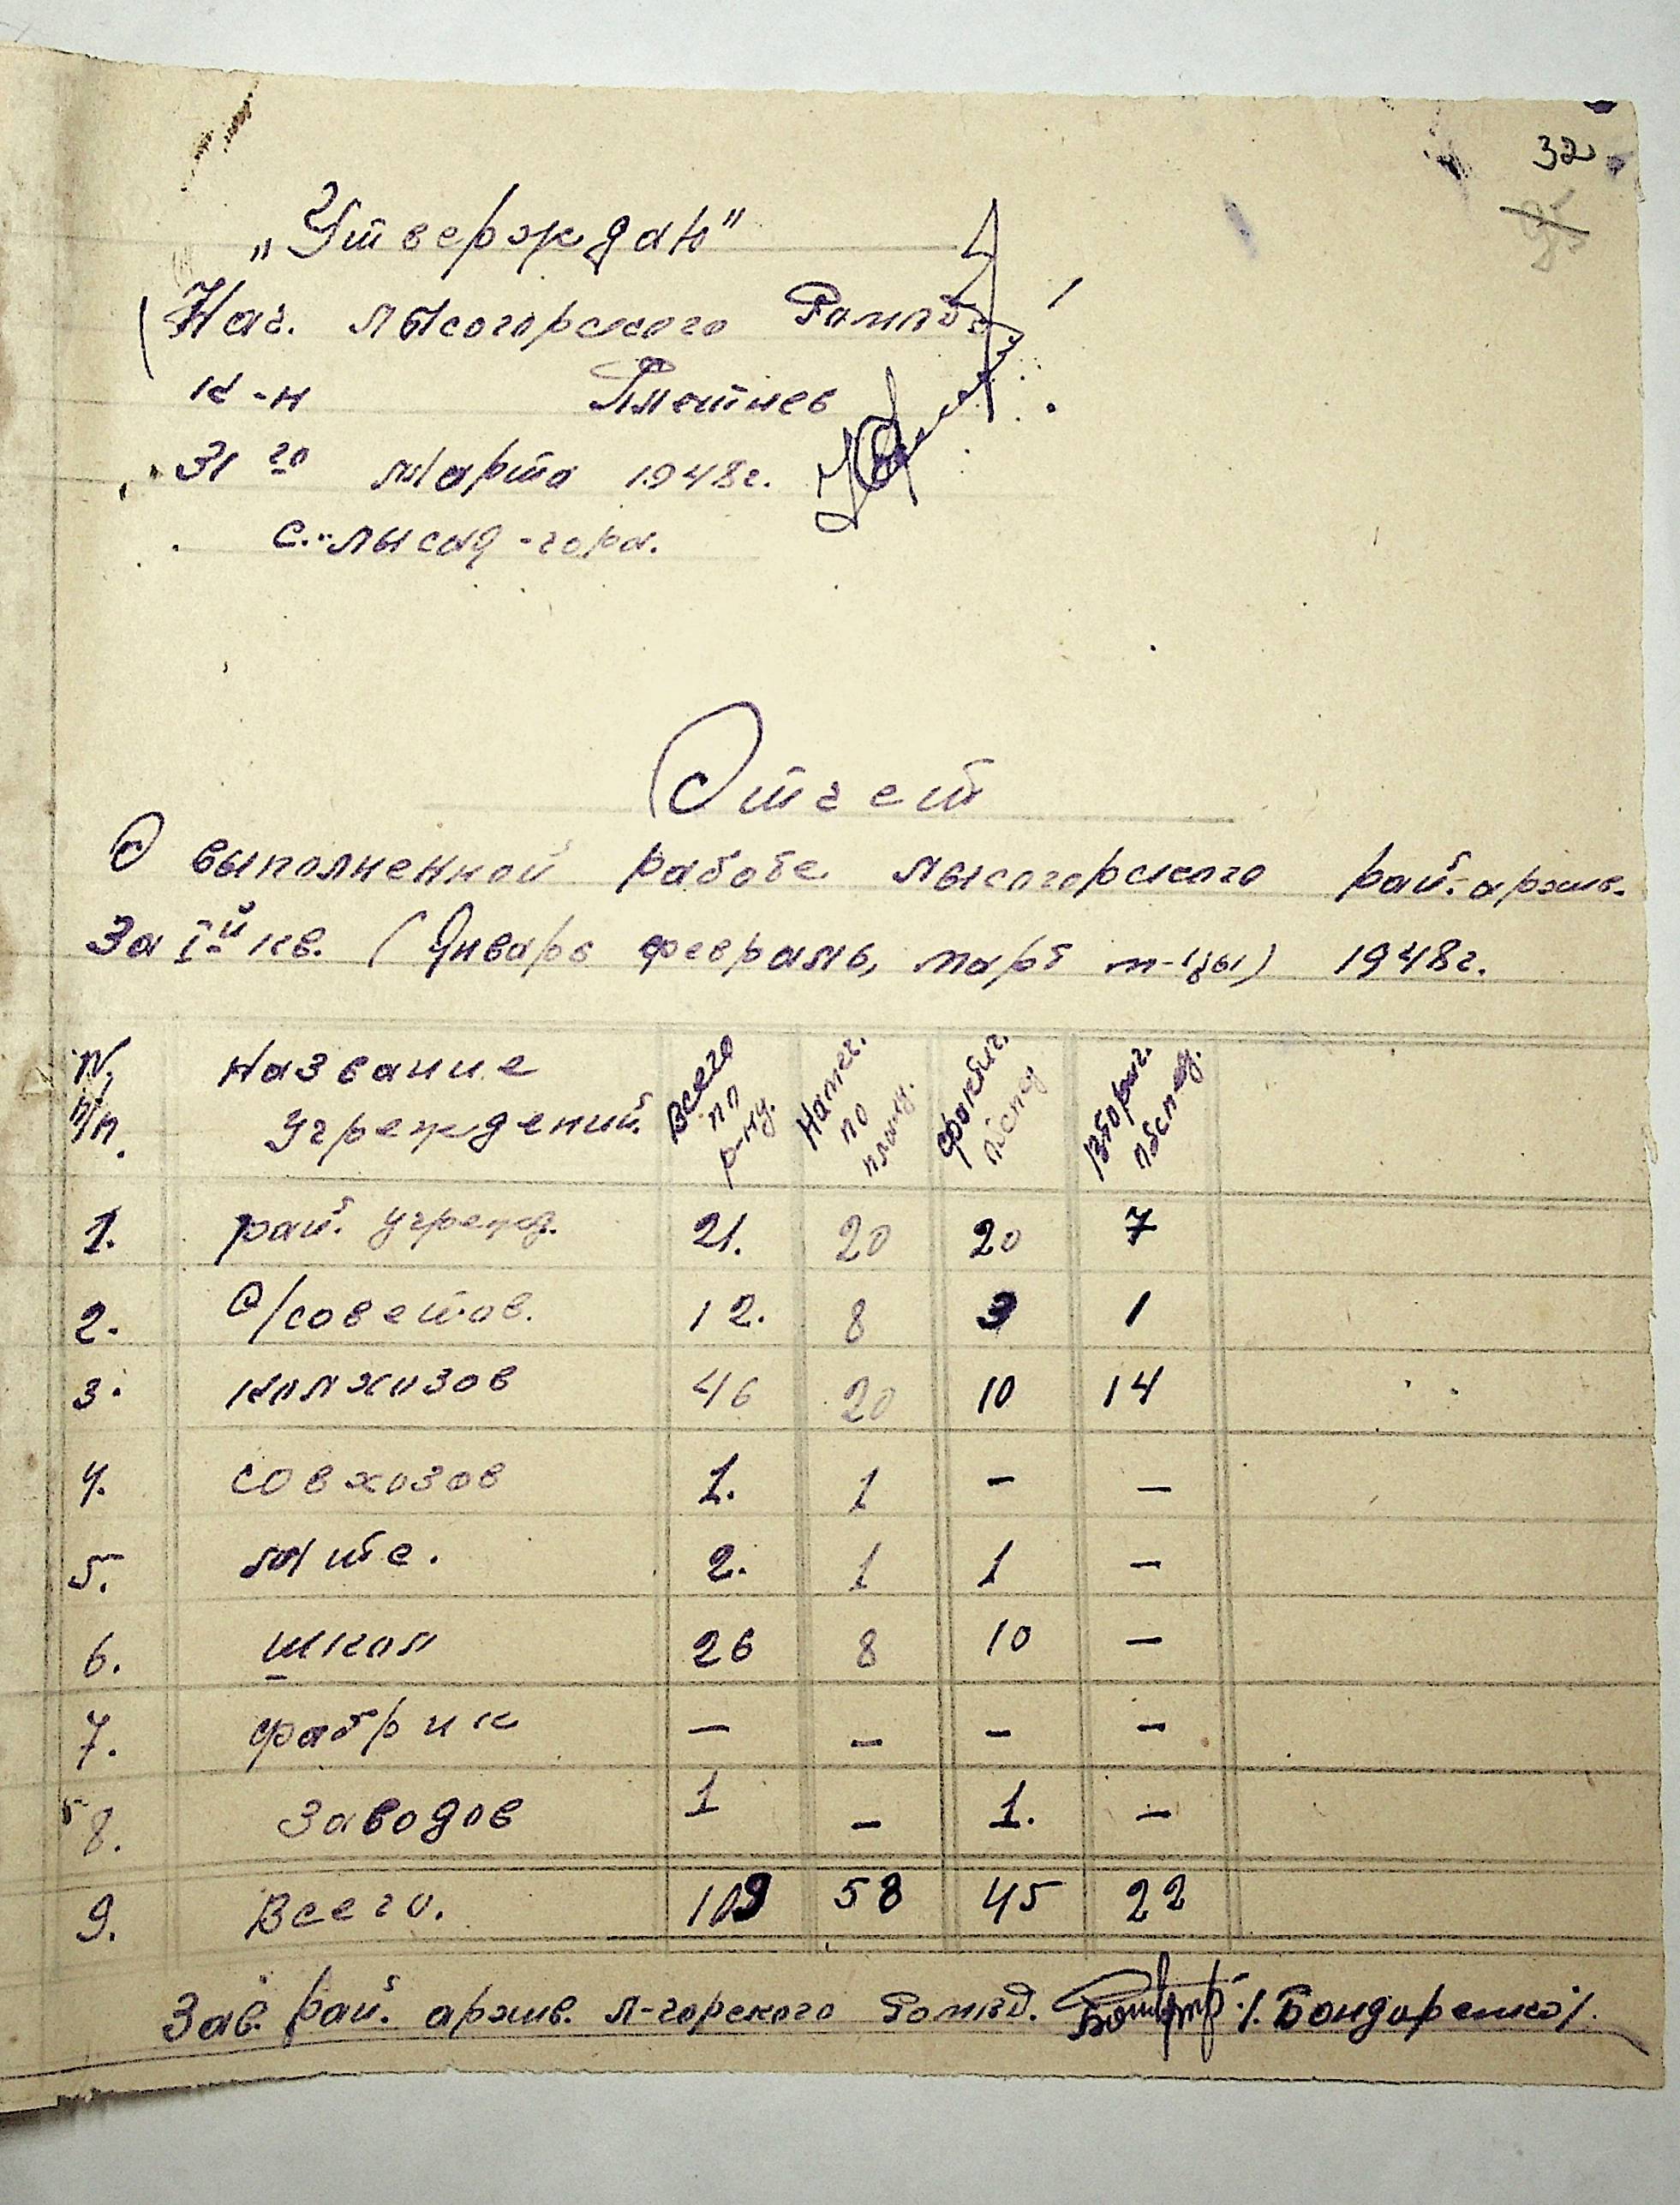 32
„Утверждаю"
Нач. Лысогорского РОМВД
к-н Плетнев
31го марта 1948г.
с. Лысая-гора.
Отчет
О выполненной работе Лысогорского рай. архив.
За Iй кв. (Январь февраль, март м-цы) 1948г.
N п/п. Название учреждений Всего по р-ну. Намеч. по плану. Фактич. обслед Вторич. обслед.
1. рай. учрежд. 21. 20 20 7
2. С/советов. 12. 8 3 1
3. колхозов 46 20 10 14
4. совхозов 1. 1 – –
5. мтс. 2. 1 1 –
6. школ 26 8 10 –
7. фабрик – – – –
8. Заводов 1 – 1. –
9. Всего. 109 58 45 22
Зав. рай. архив. Л-горского РОМВД. /. Бондаренко/.